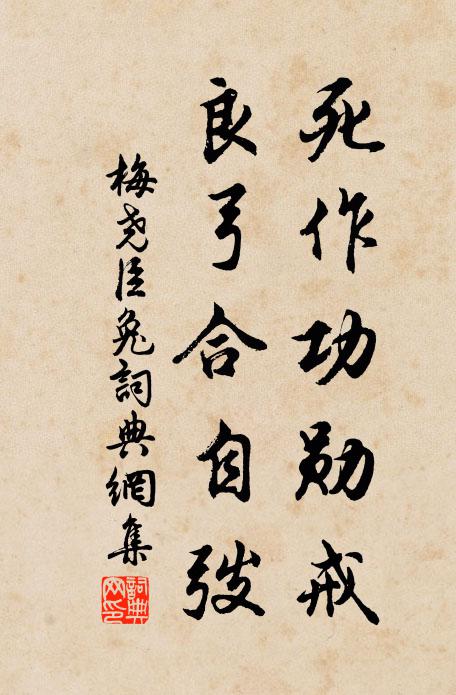 死作功勋戒
良弓合自弢
梅尧臣兔詞典網集
詞典网印